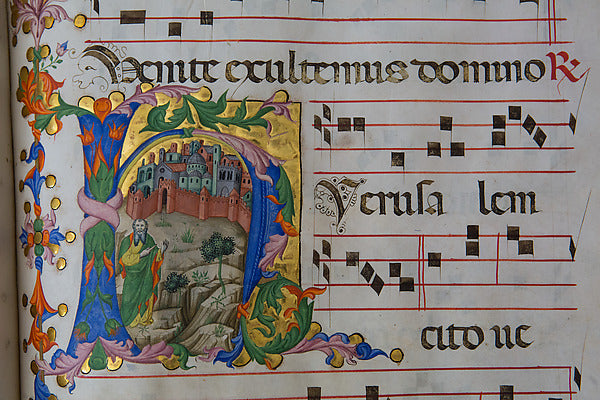 Venite exultemus domino ℞
HIerusa lem
cito ue